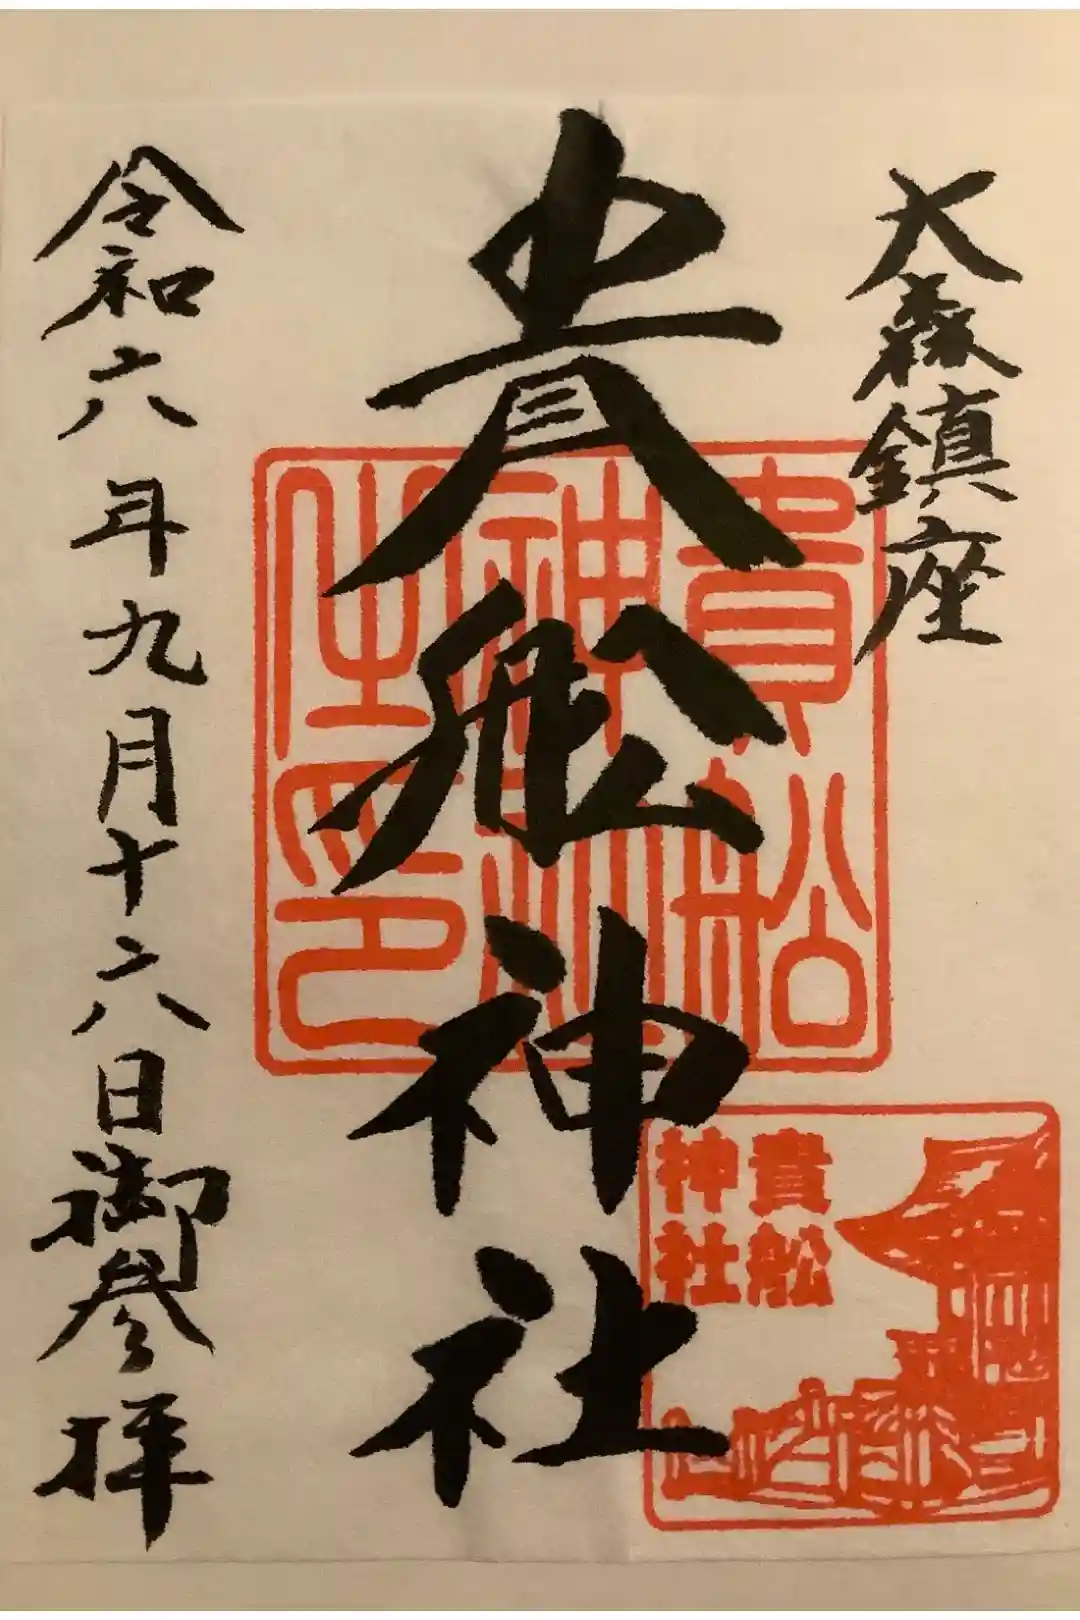 大森鎮座
貴舩神社
令和六年九月十六日御参拝
貴舩
神社
之印
貴舩
神社